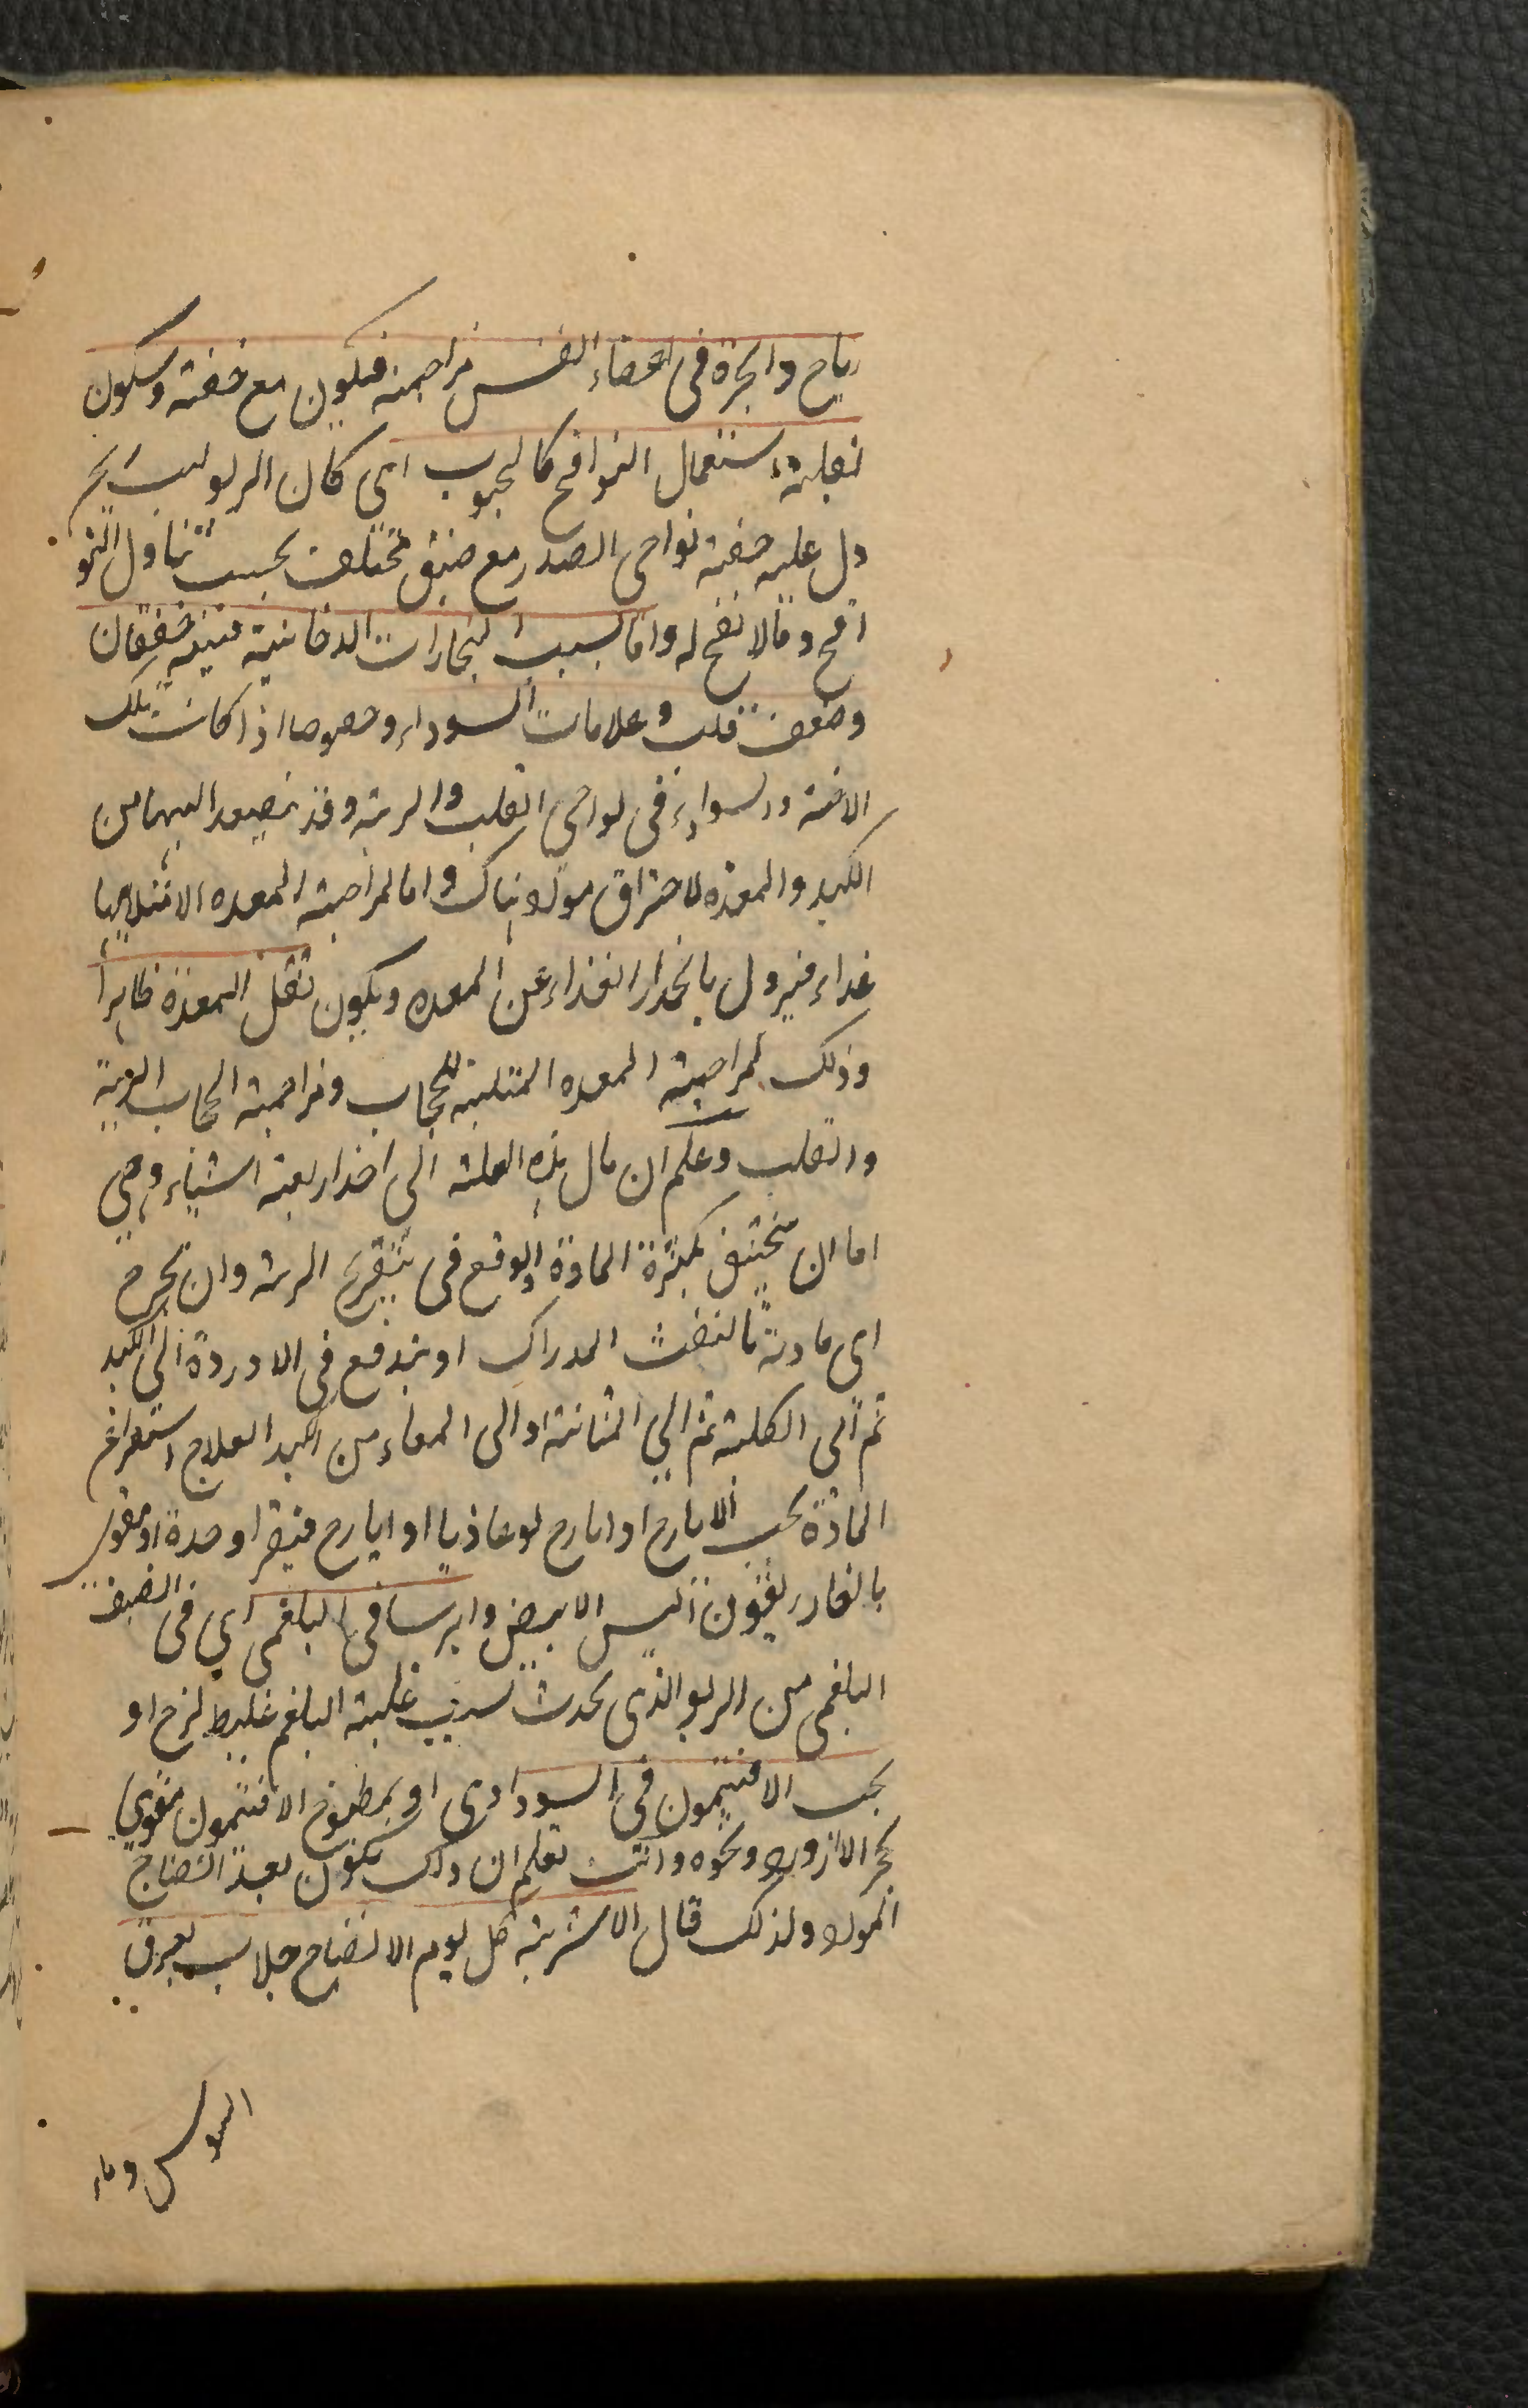 رياح وابخرة فى اعضاء النفس مزاحمة فيكون مع خفته وسكون
لقلة استعمال النوافخ كالحبوب اى كان الربو لسبب ريح
دل عليه خفة نواحى الصدر مع ضيق مختلف بحسب تناول النو
افخ وما لا نفخ له واما لسبب البخارات الدخانية فيتبعه خفقان
وضعف قلب وعلامات السوداء وخصوصا اذا كانت تلك
الادخنة والسوداء فى نواحى القلب والرية وقد تصعد اليهما من
الكبد والمعدة لاحتراق مواد هناك واما لمزاحمة المعده لامتلائها
غداء فيزول بانحدار الغذاء عن المعده ويكون ثقل المعدة ظاهراً
وذلك لمزاحمة المعده الممتلئة للحجاب ومزاحمة الحجاب الرية
والقلب وعلم ان مال هذه العلة الى احد اربعة اشياء وهى
اما ان يختنق بكثرة المادة او الوقع فى تقريح الرية وان تخرج
اى مادته بالنفث المدراك او يندفع فى الاوردة الى الكبد
ثم الى الكلية ثم الى المثانة او الى المعاء من الكبد العلاج استفراغ
المادة بحب الايارج او ايارج لوغاذيا او ايارج فيقرا وحدة او مقوى
بالغاريقون اليس الابيض وايرسا فى البلغمى اى فى الصنف
البلغمى من الربو الذى يحدث لسبب غلبة البلغم غليظ لزج او
بحب الافتيمون فى السوداوى او بمطبوخ الافتيمون مقوى
بحجر الازورد ونحوه وانت تعلم ان ذلك يكون بعد انضاج
المواد ولذلك قال الاشربة كل يوم الانضاج جلاب بعرق
السوس وماء